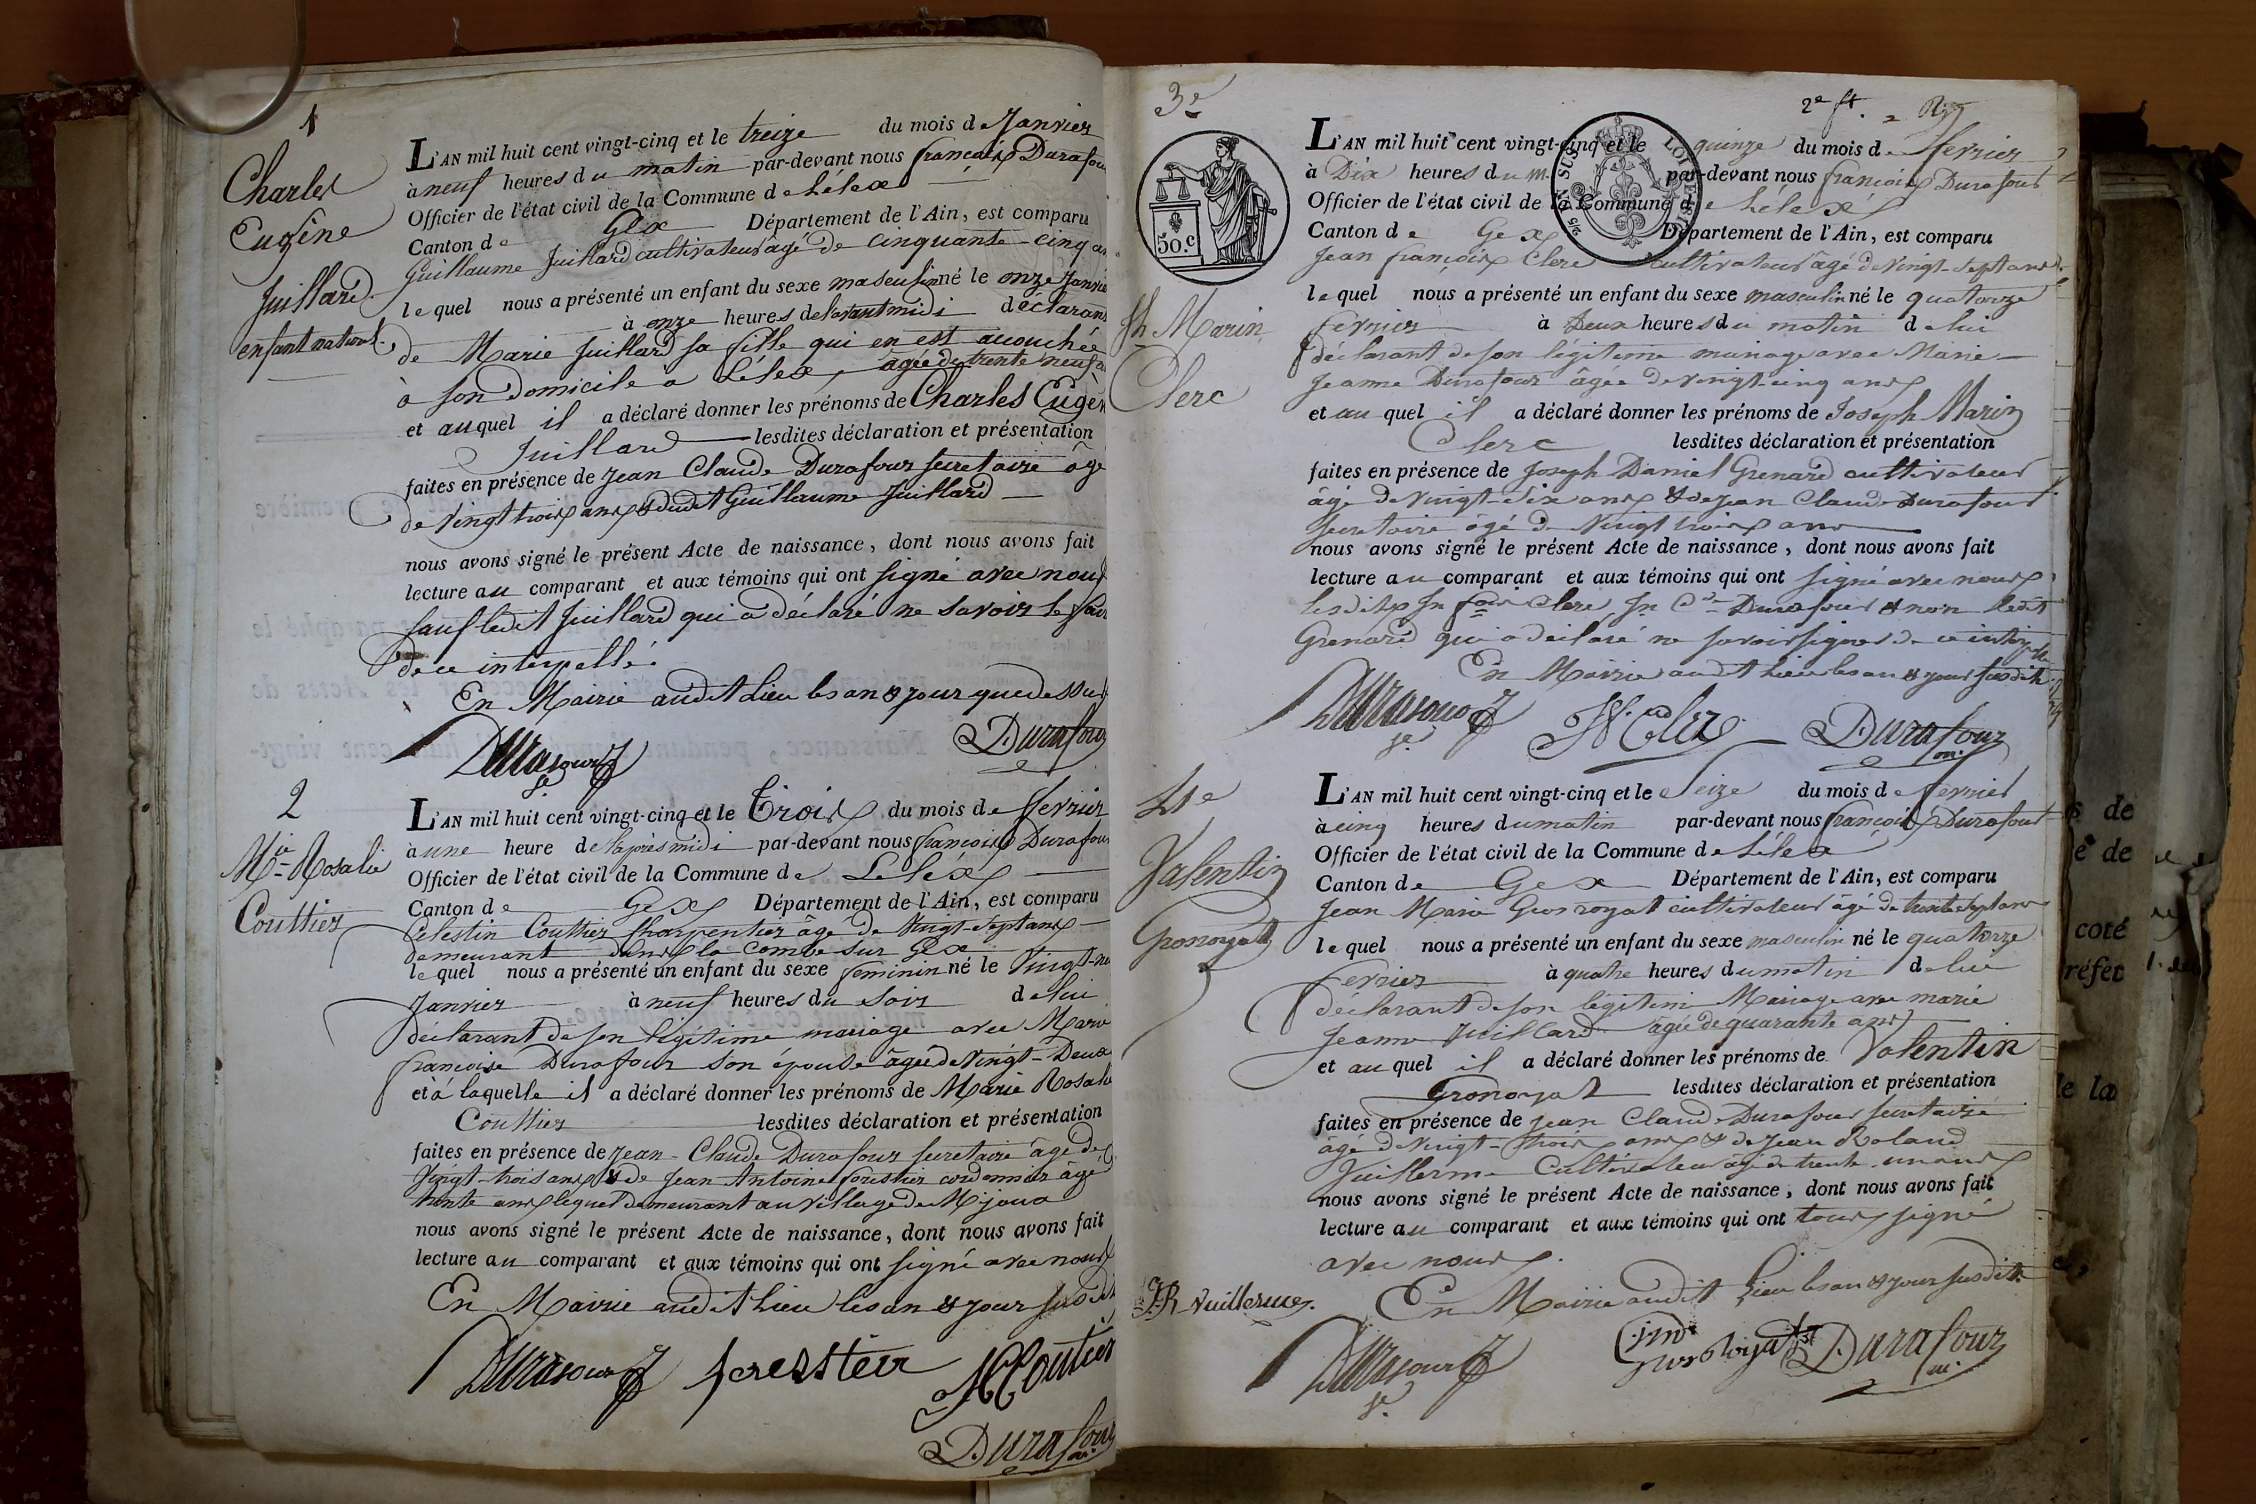 1
Charles
Eugène
Juillard
enfant naturel.
L'AN mil huit cent vingt-cinq et le treize du mois de Janvier
à neuf heures du matin par-devant nous françois Durafour
Officier de l'état civil de la Commune de Lélex
Canton de Gex Département de l'Ain, est comparu
Guillaume Juillard cultivateur âgé de cinquante-cinq an
lequel nous a présenté un enfant du sexe masculin né le onze Janvie
à onze heures de lavant midi déclarant
de Marie Juillard sa fille qui en est acouchée
à son Domicile a Lélex, agée de trente neuf a
et auquel il a déclaré donner les prénoms de Charles Eugèn
Juillard lesdites déclaration et présentation
faites en présence de Jean Claude Durafour secretaire âgé
de Vingt trois ans & dudit Guillaume Juillard
nous avons signé le présent Acte de naissance, dont nous avons fait
lecture au comparant et aux témoins qui ont signé avec nous
sauf ledit Juillard qui a déclaré ne savoir le fair
de ce interpellé.
En Mairie audit Lieu les an & jour que dessus
Durafour Durafour
se
2
Mie Rosalie
Couttier
L'AN mil huit cent vingt-cinq et le Trois du mois de fevrier
à une heure de laprès midi par-devant nous françois Durafour
Officier de l'état civil de la Commune de Lelex
Canton de Gex Département de l'Ain, est comparu
Celestin Couttier Charpentier âgé de Vingt-Sept ans
demeurant dans la combe sur Gex
lequel nous a présenté un enfant du sexe feminin né le Vingt-ne
Janvier à neuf heures du Soir de lui
déclarant de son légitime mariage avec Marie
françoise Durafour son épouse âgée de Vingt-Deux
et à laquelle il a déclaré donner les prénoms de Marie Rosalie
Couttier lesdites déclaration et présentation
faites en présence de Jean-Claude Durafour secretaire âgé de
Vingt-trois ans & de Jean Antoine forestier cordonnier âgé
trente ans lequel demeurant au village de Mijoux
nous avons signé le présent Acte de naissance, dont nous avons fait
lecture au comparant et aux témoins qui ont signé avec nous
En Mairie audit Lieu les an & jour susdit
Durafour forestier Coutier
Durafour
m.
3e
2e ft.
50.c
LOI
Jh. Marin
Clerc
L'AN mil huit cent vingt-cinq et le quinze du mois de fevrier
à Dix heures du m par-devant nous françois Durafour
Officier de l'état civil de la Commune de Lélex
Canton de Gex Département de l'Ain, est comparu
Jean françois Clerc cultivateur âgé de Vingt-Sept ans
lequel nous a présenté un enfant du sexe masculin né le quatorze
fevrier à Deux heures du matin de lui
déclarant de son légitime mariage avec Marie
Jeanne Durafour âgée de vingt cinq ans
et au quel il a déclaré donner les prénoms de Joseph Marin
Clerc lesdites déclaration et présentation
faites en présence de Joseph Daniel Grenard cultivateur
âgé de vingt-Six ans & de Jean Claude Durafour
secretaire âgé de Vingt trois ans
nous avons signé le présent Acte de naissance, dont nous avons fait
lecture au comparant et aux témoins qui ont signé avec nous
lesdits Jn fois Clerc, Jn Cde Durafour & non ledit
Grenard qui a déclaré ne savoir signer de ce interpellé
En Mairie audit Lieu les an & jour susdit
Durafour Clerc Durafour
se. m.
4e
Valentin
Grosroyat
L'AN mil huit cent vingt-cinq et le Seize du mois de fevrier
à cinq heures du matin par-devant nous françois Durafour
Officier de l'état civil de la Commune de Lélex
Canton de Gex Département de l'Ain, est comparu
Jean Marie Grosroyat cultivateur âgé de trente Sept ans
lequel nous a présenté un enfant du sexe masculin né le quatorze
fevrier à quatre heures du matin de lui
déclarant de son légitime Mariage avec marie
Jeanne Juillard agée de quarante ans
et au quel il a déclaré donner les prénoms de Valentin
Grosroyat lesdites déclaration et présentation
faites en présence de Jean Claude Durafour secretaire
âgé de Vingt-trois ans & de Jean Roland
Vuillerme Cultivateur âgé de trente-un ans
nous avons signé le présent Acte de naissance, dont nous avons fait
lecture au comparant et aux témoins qui ont tous signé
avec nous.
En Mairie audit Lieu les an & jour susdit.
J.R Vuillermez.
Durafour jm Grosroyat Durafour
se. m.
s de
e de
coté
réfet
le la